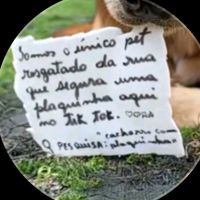 Somos o único pet
resgatado da rua
que segura uma
plaquinha aqui
no Tik Tok. ♡
PESQUISA: "cachorro com
plaquinha"